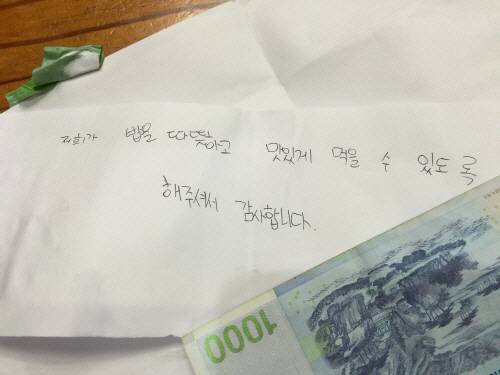 저희가 밥을 따뜻하고 맛있게 먹을 수 있도록
해주셔서 감사합니다.
1000